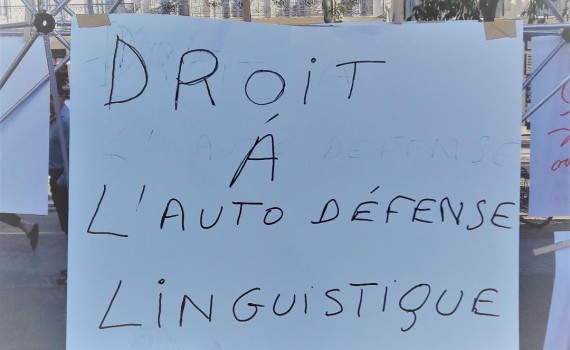 DROIT
Á
L'AUTO DÉFENSE
LINGUISTIQUE